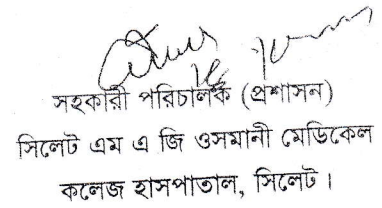 সহকারী পরিচালক (প্রশাসন)
সিলেট এম এ জি ওসমানী মেডিকেল
কলেজ হাসপাতাল, সিলেট।